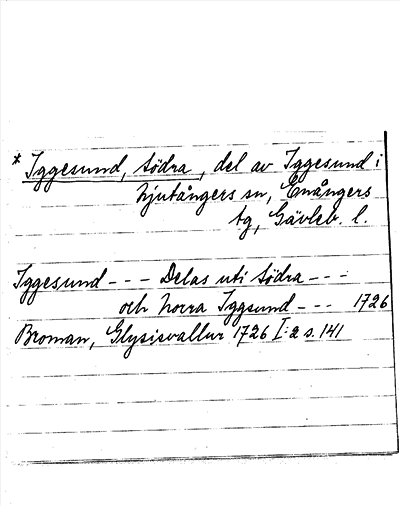 * Iggesund, södra, del av Iggesund i
Njutångers sn, Enångers
tg, Gävleb. l.
Iggesund - - - Delas uti södra - - -
och norra Iggsund - - - 1726
Broman, Glysisvallur 1726 I:2 s. 141